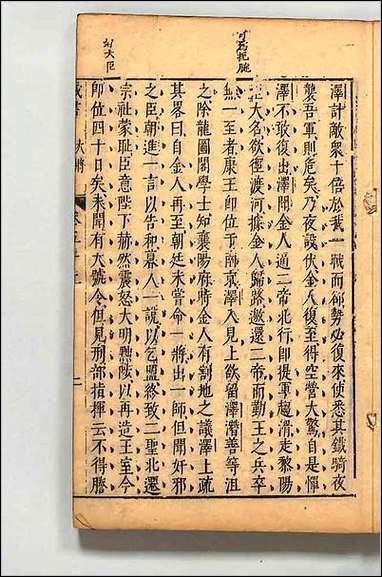 可為扼腕
幻大臣
澤計敵衆十倍於我一戰而卻勢必復來使悉其鐵騎夜
襲吾軍則危矣乃夜設伏金人復至得空營大驚自是憚
澤不敢復出澤聞金人逼二帝北行即提軍趨滑走黎陽
抵大名欲徑渡河據金人歸路邀還二帝而勤王之兵卒
無一至者康王即位于南京澤入見上欲留澤潛善等沮
之除龍圖閣學士知襄陽府時金人有割地之議澤上疏
其畧曰自金人再至朝廷未嘗命一將出一師但聞奸邪
之臣朝進一言以告和暮入一說以乞盟終致二聖北遷
宗社蒙恥臣意陛下赫然震怒大明黜陟以再造王室今
即位四十日矣未聞有大號令但見刑部指揮云不得謄
大將
二